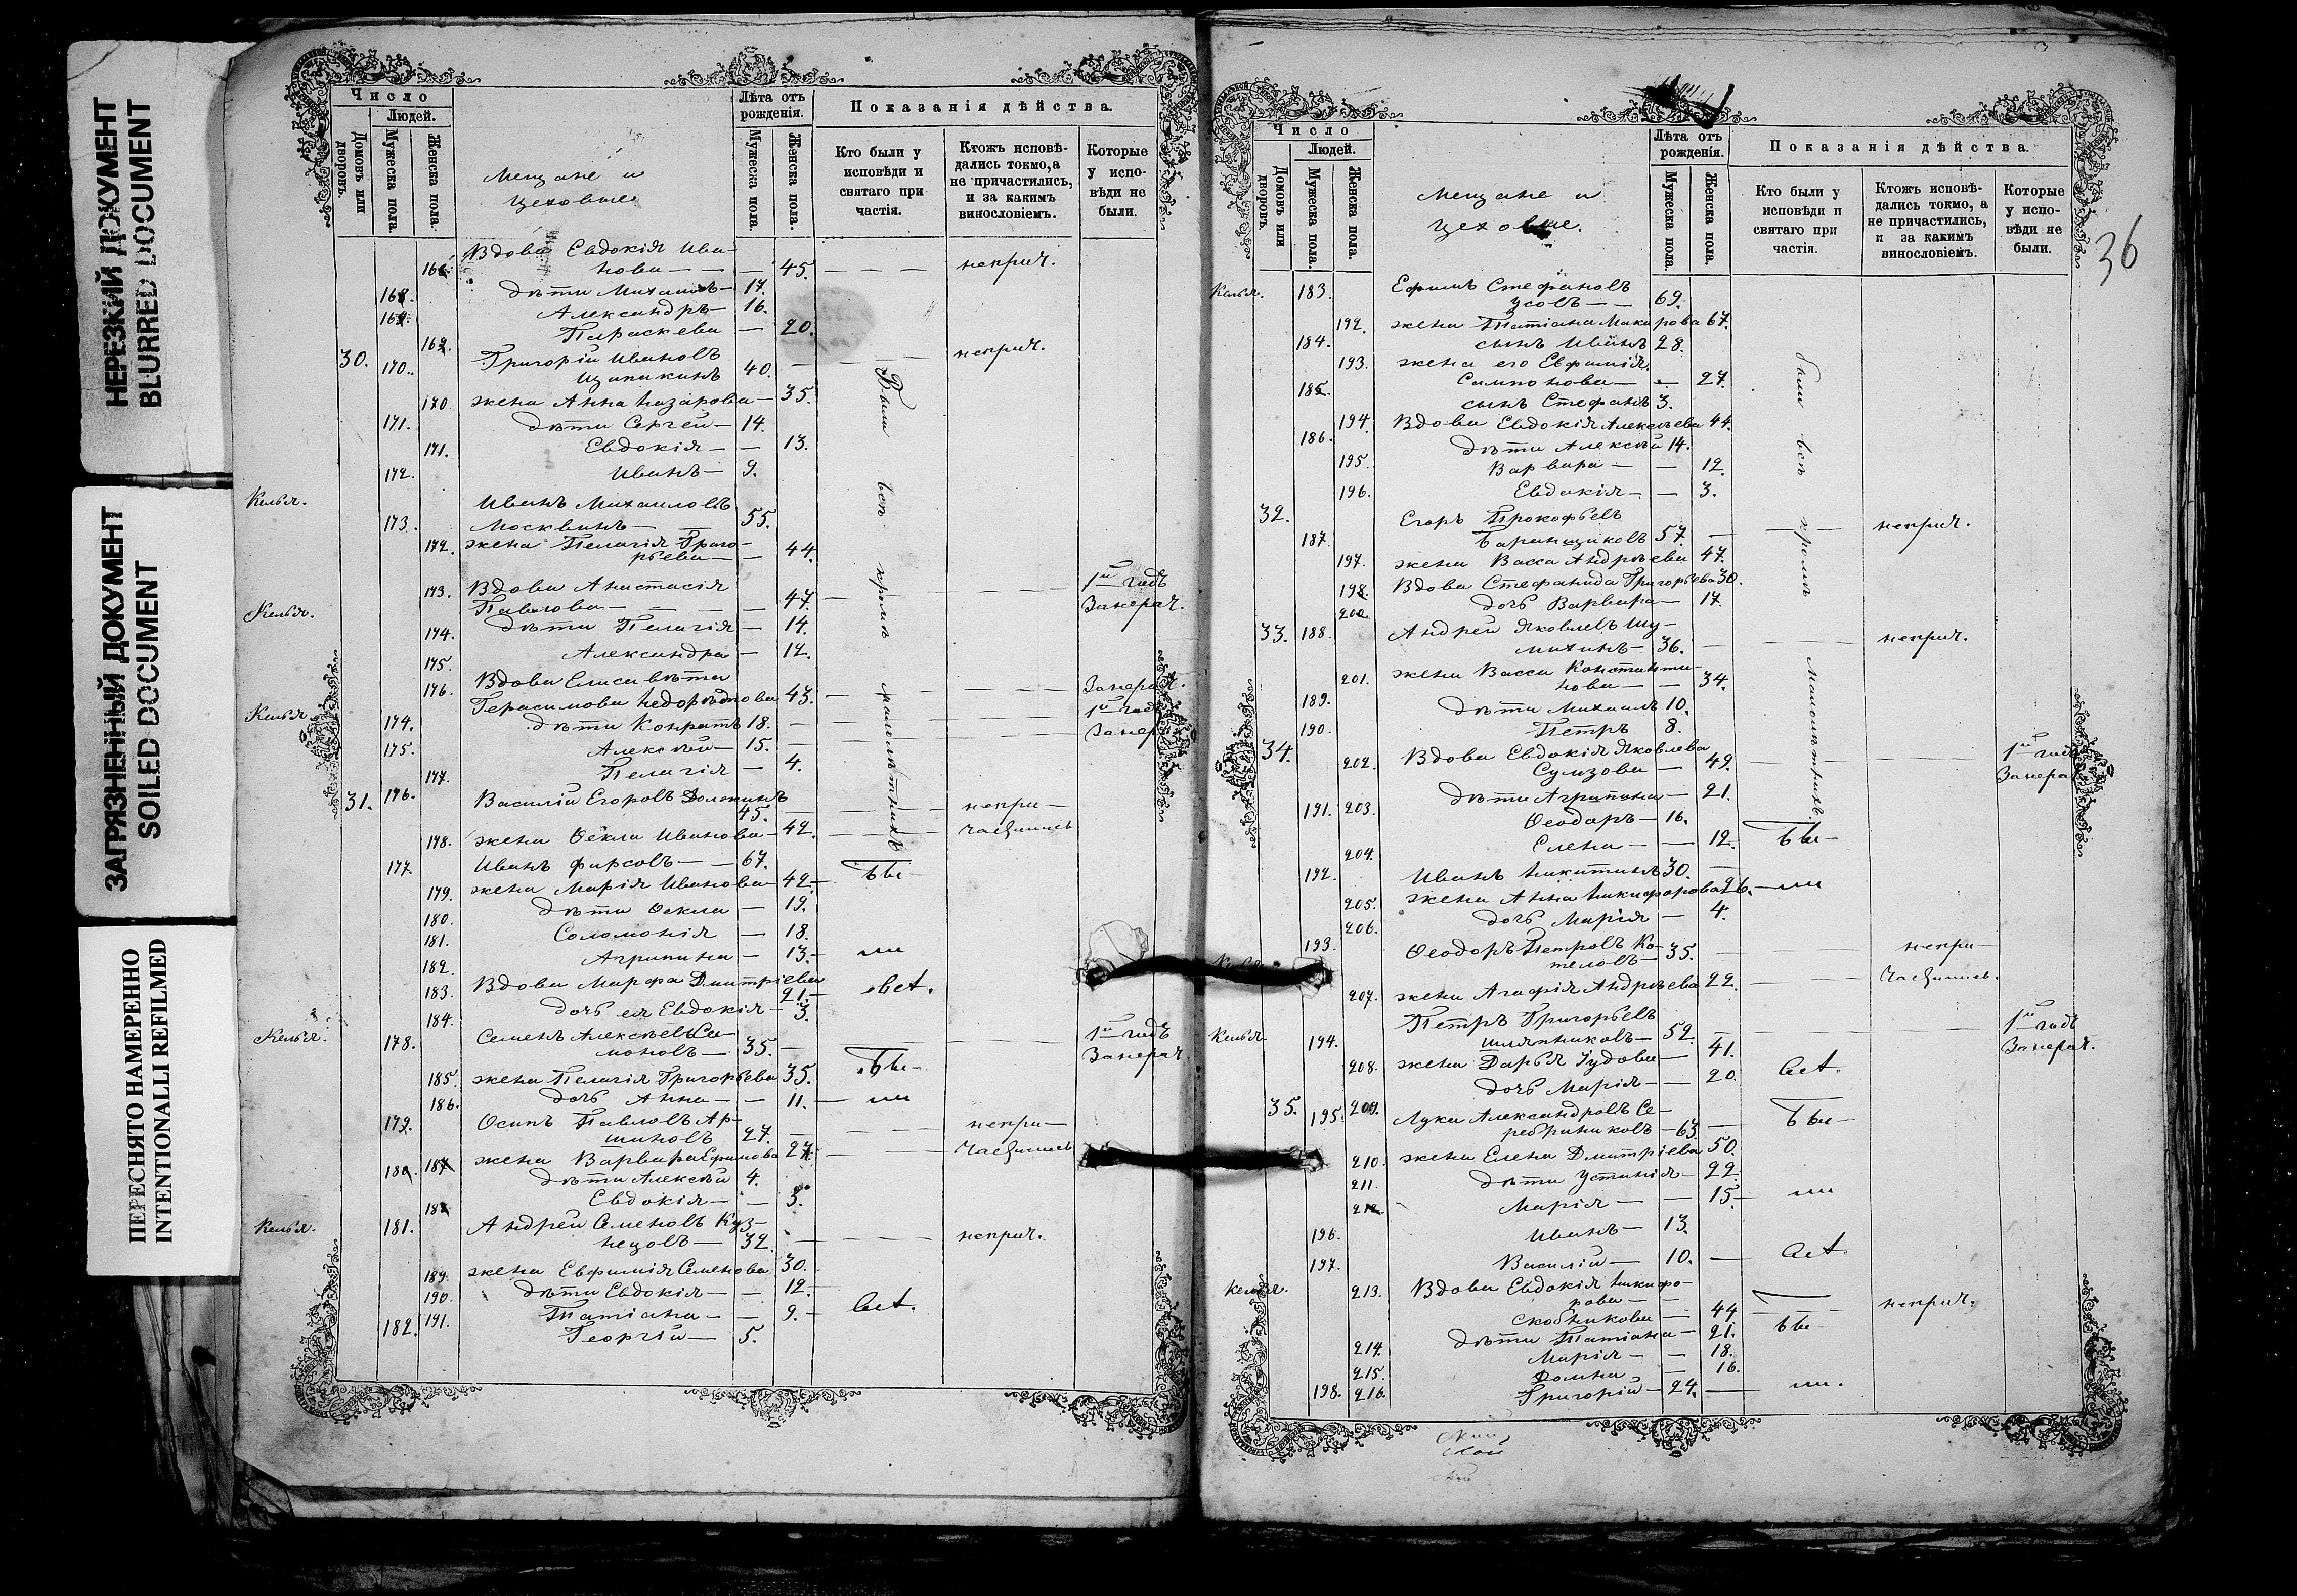 НЕРЕЗКИЙ ДОКУМЕНТ
BLURRED DOCUMENT
ЗАГРЯЗНЕННЫЙ ДОКУМЕНТ
SOILED DOCUMENT
ПЕРЕСНЯТО НАМЕРЕННО
INTENTIONALLI REFILMED
Число
Людей.
Домовъ или дворовъ.
Мужеска пола.
Женска пола.
Мещане и
цеховые
Лѣта отъ рожденія.
Мужеска пола.
Женска пола.
Показанія дѣйства.
Кто были у исповѣди и святаго причастія.
Ктожъ исповѣдались токмо, а не причастились, и за какимъ винословіемъ.
Которые у исповѣди не были.
Вдова Евдокія Ива-
нова — — — 45. — — — неприч.
дѣти Михаилъ — 17.
Александръ — 16.
Параскева — 20.
30. 170. Григорій Ивановъ
40. — — — неприч.
170 жена Анна Назарова — 35.
171. дѣти Сергѣй — 14.
171. Евдокія — — 13.
172. Иванъ — 9.
Келья. Иванъ Михаиловъ
173. Москвинъ — 55.
172. жена Пелагія Григо-
рьева — — 44.
173. Вдова Анастасія 1й годъ
Келья. Павлова — — — 47. — — — Занерач.
174. дѣти Пелагія — 14.
175. Александра — 12.
176. Вдова Елисавѣта Занерач.
Герасимова 43. — — — 1й годъ
Келья 174. дѣти Конратъ 18. — — — Занер
175. Алексѣй — 15.
177. Пелагія — 4.
31. 176. Василій Егоровъ
45. — — — непри-
178. жена Ѳекла Иванова — 42. — — — частились
177. Иванъ Фирсовъ — — 67. Бы-
179. жена Марія Иванова — 42. —
180. дѣти Ѳекла — 19.
181. Соломонія — 18.
182. Агрипина — 13. — ли
183. Вдова Марфа Дмитріева
21. — всѣ.
184. дочь ея Евдокія — 3.
Келья. 178. Семенъ Алексѣевъ Си- 1й годъ
моновъ — 35. — — — Занерач.
185. жена Пелагія Григорьева 35. Бы-
186. дочь Анна — — 11. — ли
179. Осипъ Павловъ Ар-
шиновъ 27. — — — непри-
187 жена Варвара Ефимова — — частились
дѣти Алексѣй 4.
Евдокія — — 3.
Келья. 181. Андрей Семеновъ Куз-
нецовъ — 32. — — — неприч.
189. жена Евфимія Семенова 30. —
190. дѣти Евдокія — — 12. —
191. Татіана — — 9. — всѣ.
182. Георгій — 5.
Были всѣ кромѣ малолѣтнихъ
36
Число
Людей.
Домовъ или дворовъ.
Мужеска пола.
Женска пола.
Мещане и
цеховые.
Лѣта отъ рожденія.
Мужеска пола.
Женска пола.
Показанія дѣйства.
Кто были у исповѣди и святаго причастія.
Ктожъ исповѣдались токмо, а не причастились, и за какимъ винословіемъ.
Которые у исповѣди не были.
Келья. 183. Ефимъ Стефановъ
Усовъ — — 69.
192. жена Татіана Макарова 67.
184. сынъ Иванъ 28.
193. жена его Евфимія
Сампонова — — 27.
185. сынъ Стефанъ 3.
194. Вдова Евдокія Алексѣева 44.
186. дѣти Алексѣй 14.
195. Варвара — — 12.
196. Евдокія — — 3.
32. Егоръ Прокофьевъ
187. Баранщиковъ 57. — — — неприч.
197. жена Васса Андрѣева 47.
198. Вдова Стефанида Григорьева 30.
200 дочь Варвара — 17.
33. 188. Андрей Яковлевъ Шу-
михинъ — 36. — — — неприч.
201. жена Васса Константи-
нова — — 34.
189. дѣти Михаилъ 10.
190. Петръ 8.
34. 202. Вдова Евдокія Яковлева 1й годъ
49. — — — Занерач
203. дѣти Агрипина — 21.
191. Ѳеодоръ — 16.
204. Елена — — 12. Бы-
192. Иванъ Никитинъ 30. —
205. жена Анна Никифорова 26. — ли
206. дочь Марія — 4.
193. Ѳеодоръ Петровъ Ко-
теловъ — 35. — — — непри-
207. жена Агафія Андрѣева 22. — — частились.
Петръ Григорьевъ 1й годъ
Келья. 194. Шляпниковъ — 52. — — — Занерач.
208. жена Дарья Іудова — 41.
209. дочь Марія — — 20. всѣ.
35. 195. Лука Александровъ Се-
ребриниковъ — 63. — Бы-
210. жена Елена Дмитріева 50.
211. дѣти Устинія — 22.
212. Марія — — 15. — ли
196. Иванъ — 13.
197. Василій — 10. — всѣ.
Келья. 213. Вдова Евдокія Никифо-
рова — —
Скобникова — 44 — — неприч.
214. дѣти Татіана — 21. Бы-
215. Марія — — 18.
216. Домна — 16.
198. Григорій — 24. — ли.
были всѣ кромѣ малолѣтнихъ